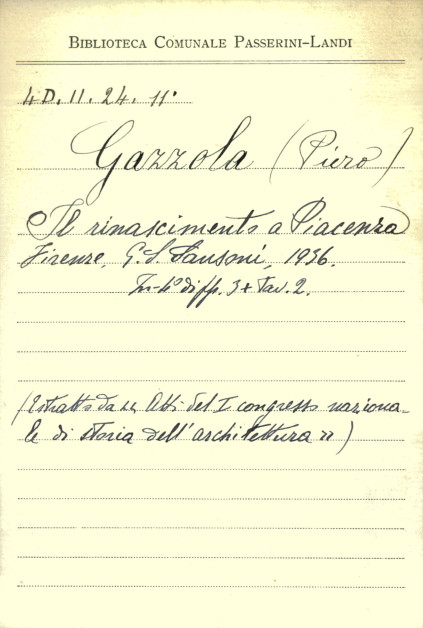 BIBLIOTECA COMUNALE PASSERINI-LANDI
4D. 11. 24. 11°
Gazzola (Piero)
Il rinascimento a Piacenza
Firenze, G. S. Sansoni, 1936.
In-4° di pp. 3 + Tav. 2.
(Estratto da « Atti del I congresso naziona-
le di storia dell'architettura »)